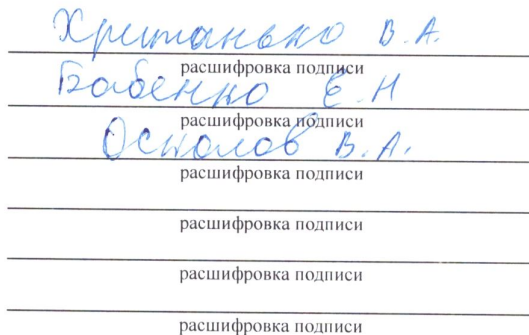 Хританько В.А.
расшифровка подписи
Бабенко Е.Н
расшифровка подписи
Осколов В.А.
расшифровка подписи
расшифровка подписи
расшифровка подписи
расшифровка подписи